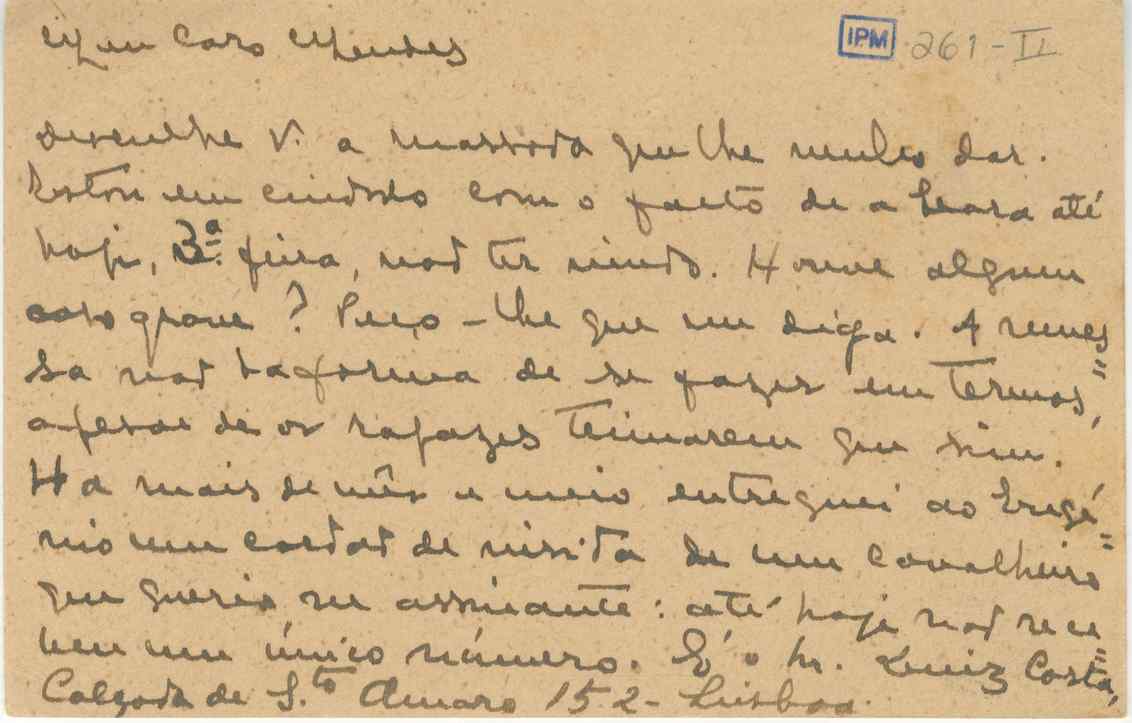 Meu caro Mendes
IPM 261-II
desculpe V. a massada que lhe venho dar.
Estou em cuidado com o facto de a Seara até
hoje, 3.ª feira, não ter vindo. Houve algum
caso grave? Peço-lhe que me diga. A remes=
sa não ha forma de se fazer em termos,
apesar de os rapazes teimarem que sim.
Ha mais de mês e meio entreguei ao Erigé=
nio um cartão de visita de um cavalheiro
que queria ser assinante: até hoje não rece=
beu um único número. É o Sr. Luiz Costa,
Calçada de S.to Amaro 152-Lisboa.